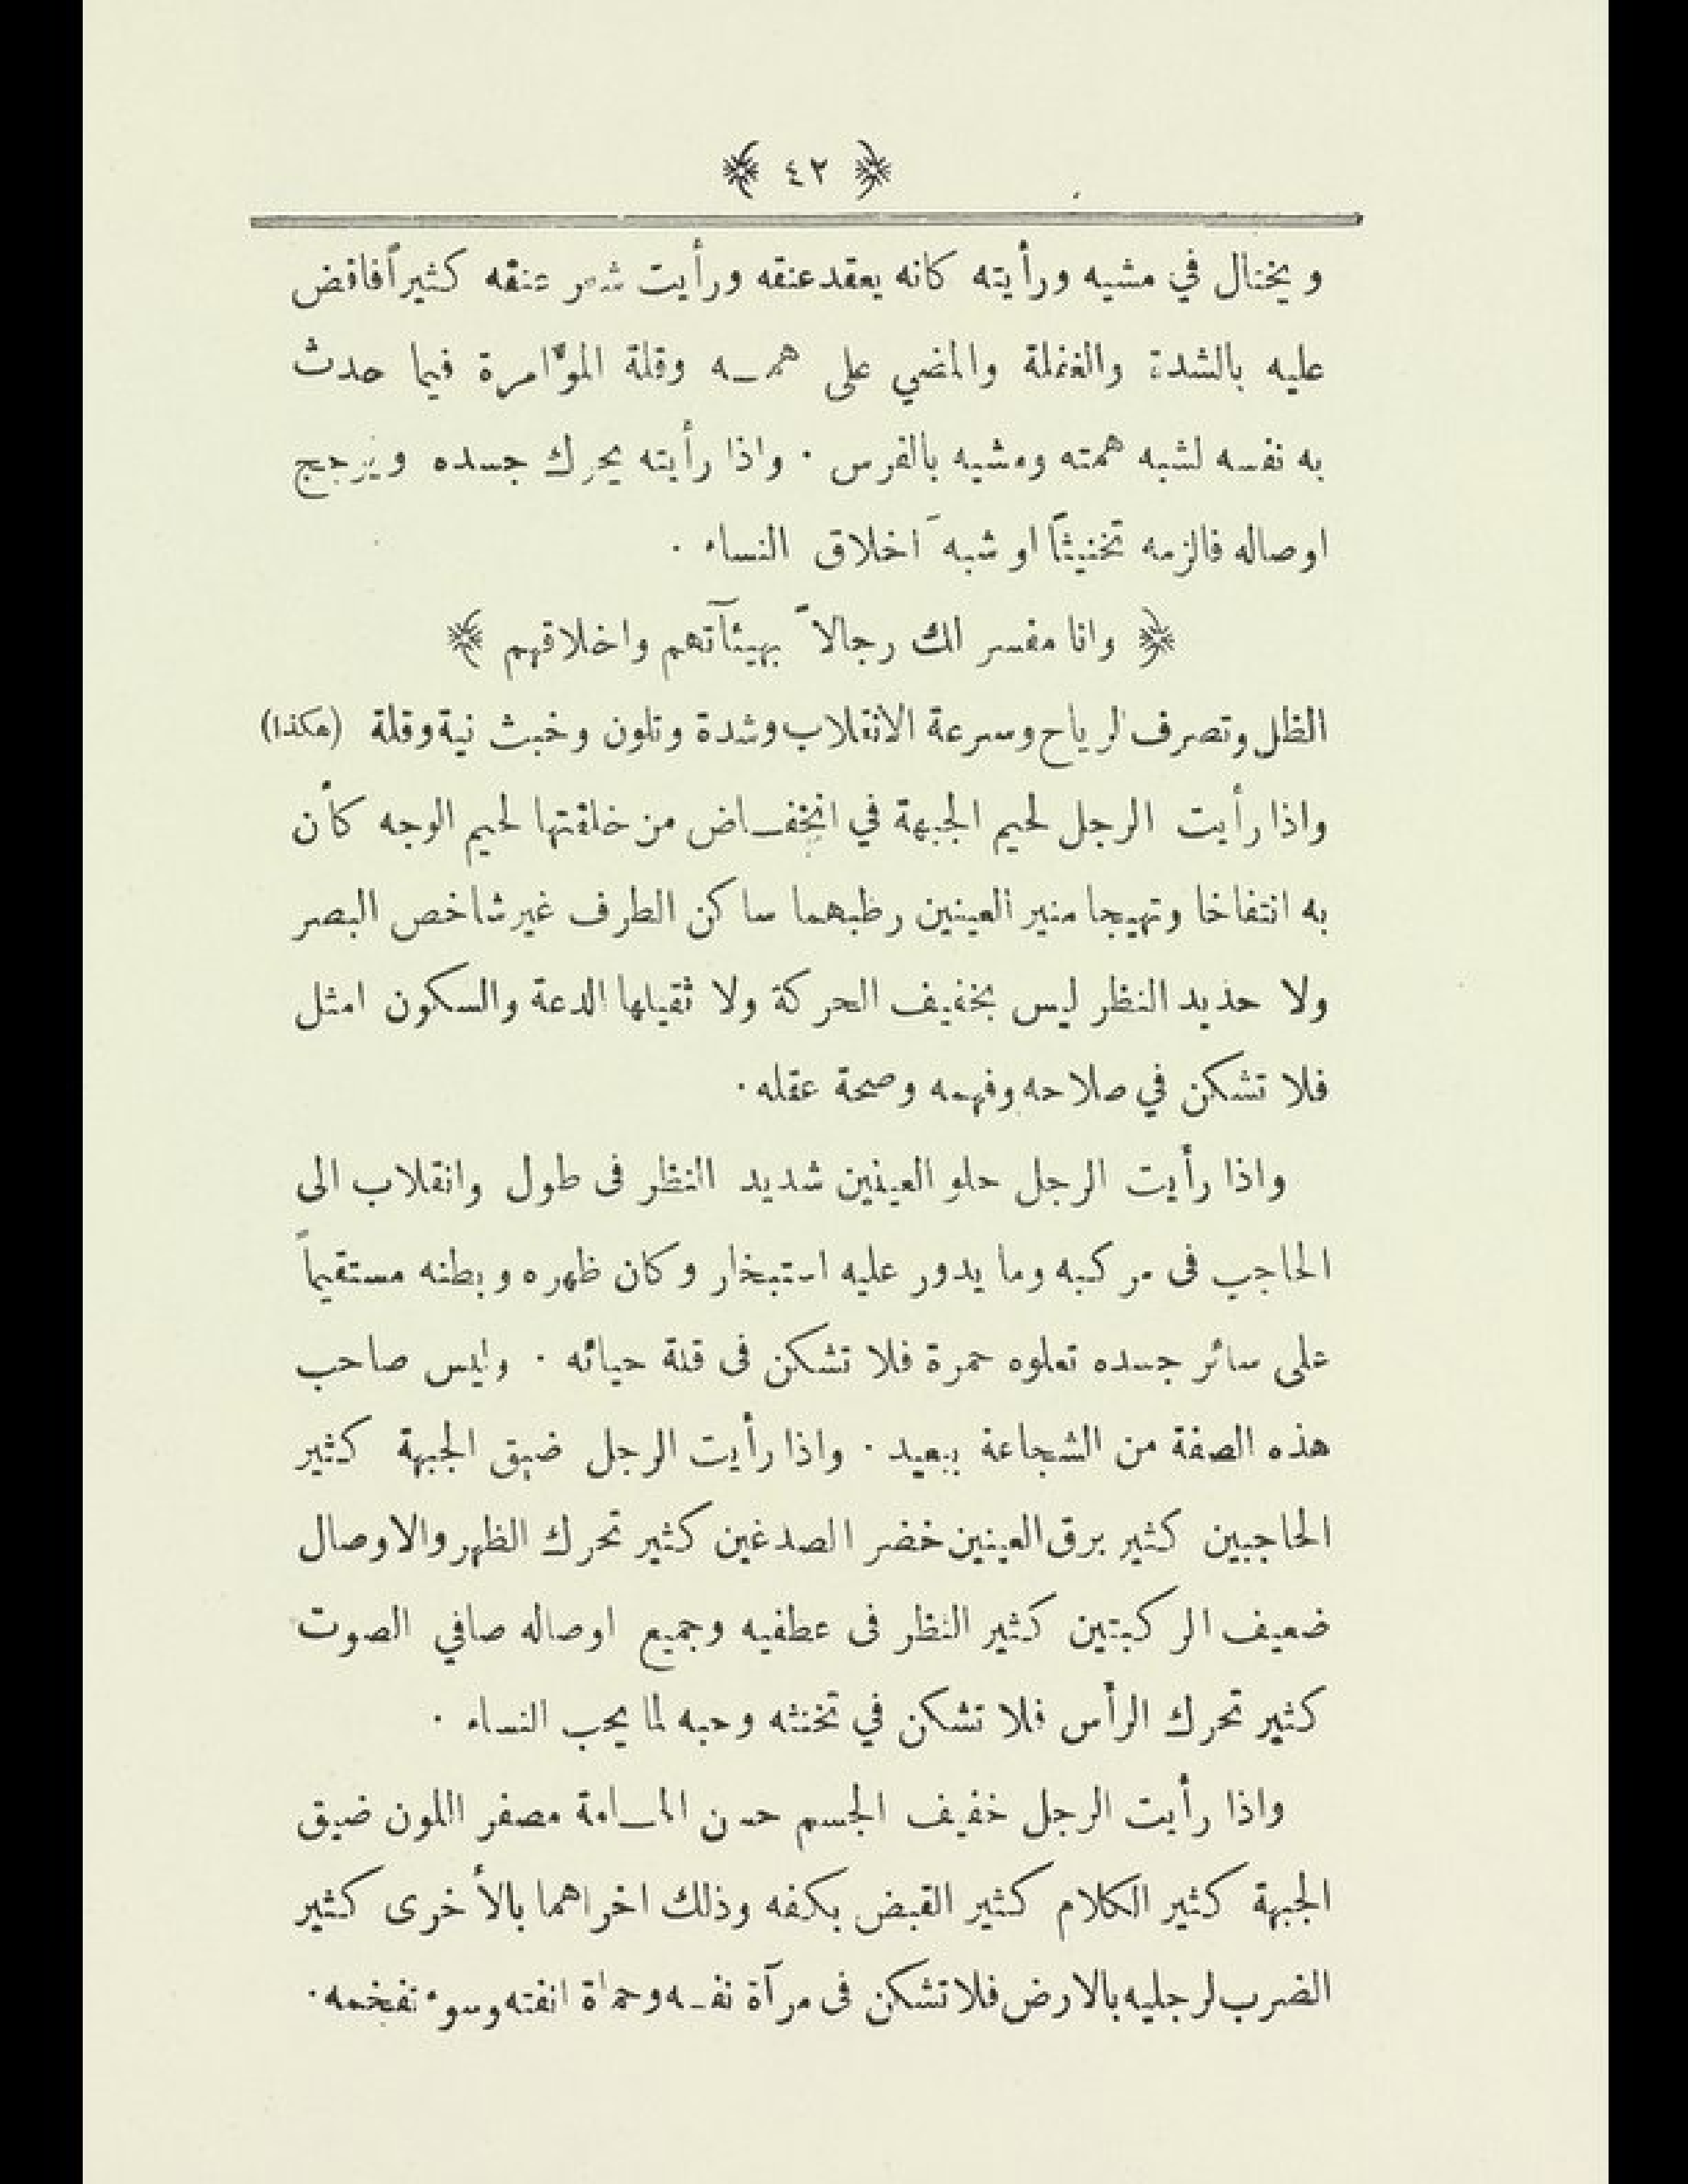 ﴿ ٤٢ ﴾
ويختال في مشيه ورأيته كانه يعقد عنقه ورأيت شعر عنقه كثيراً فاقض
عليه بالشدة والغفلة والمضي على همـه وقلة المؤامرة فيما حدث
به نفسه لشبه همته ومشيه بالفرس . واذا رأيته يحرك جسده ويرجج
اوصاله فالزمه تخنيثاً او شبه اخلاق النساء .
﴿ وانا مفسر لك رجالاً بهيئآتهم واخلاقهم ﴾
الظل وتصرف لرياح وسرعة الانقلاب وشدة وتلون وخبث نية وقلة (هكذا)
واذا رأيت الرجل لحيم الجبهة في انخفـاض من خلقتها لحيم الوجه كأن
به انتفاخا وتهيجا منير العينين رطبهما ساكن الطرف غير شاخص البصر
ولا حديد النظر ليس بخفيف الحركة ولا ثقيلها الدعة والسكون امثل
فلا تشكن في صلاحه وفهمه وصحة عقله .
واذا رأيت الرجل حلو العينين شديد النظر فى طول وانقلاب الى
الحاجب فى مركبه وما يدور عليه استبخار وكان ظهره وبطنه مستقيماً
على سائر جسده تعلوه حمرة فلا تشكن فى قلة حيائه . وليس صاحب
هذه الصفة من الشجاعة ببعيد . واذا رأيت الرجل ضيق الجبهة كثير
الحاجبين كثير برق العينين خضر الصدغين كثير تحرك الظهر والاوصال
ضعيف الركبتين كثير النظر فى عطفيه وجميع اوصاله صافي الصوت
كثير تحرك الرأس فلا تشكن في تخنثه وحبه لما يحب النساء .
واذا رأيت الرجل خفيف الجسم حسن المـامة مصفر اللون ضيق
الجبهة كثير الكلام كثير القبض بكفه وذلك اخراهما بالأخرى كثير
الضرب لرجليه بالارض فلا تشكن فى مرآة نفـه وحماة انفته وسوء تفخمه .